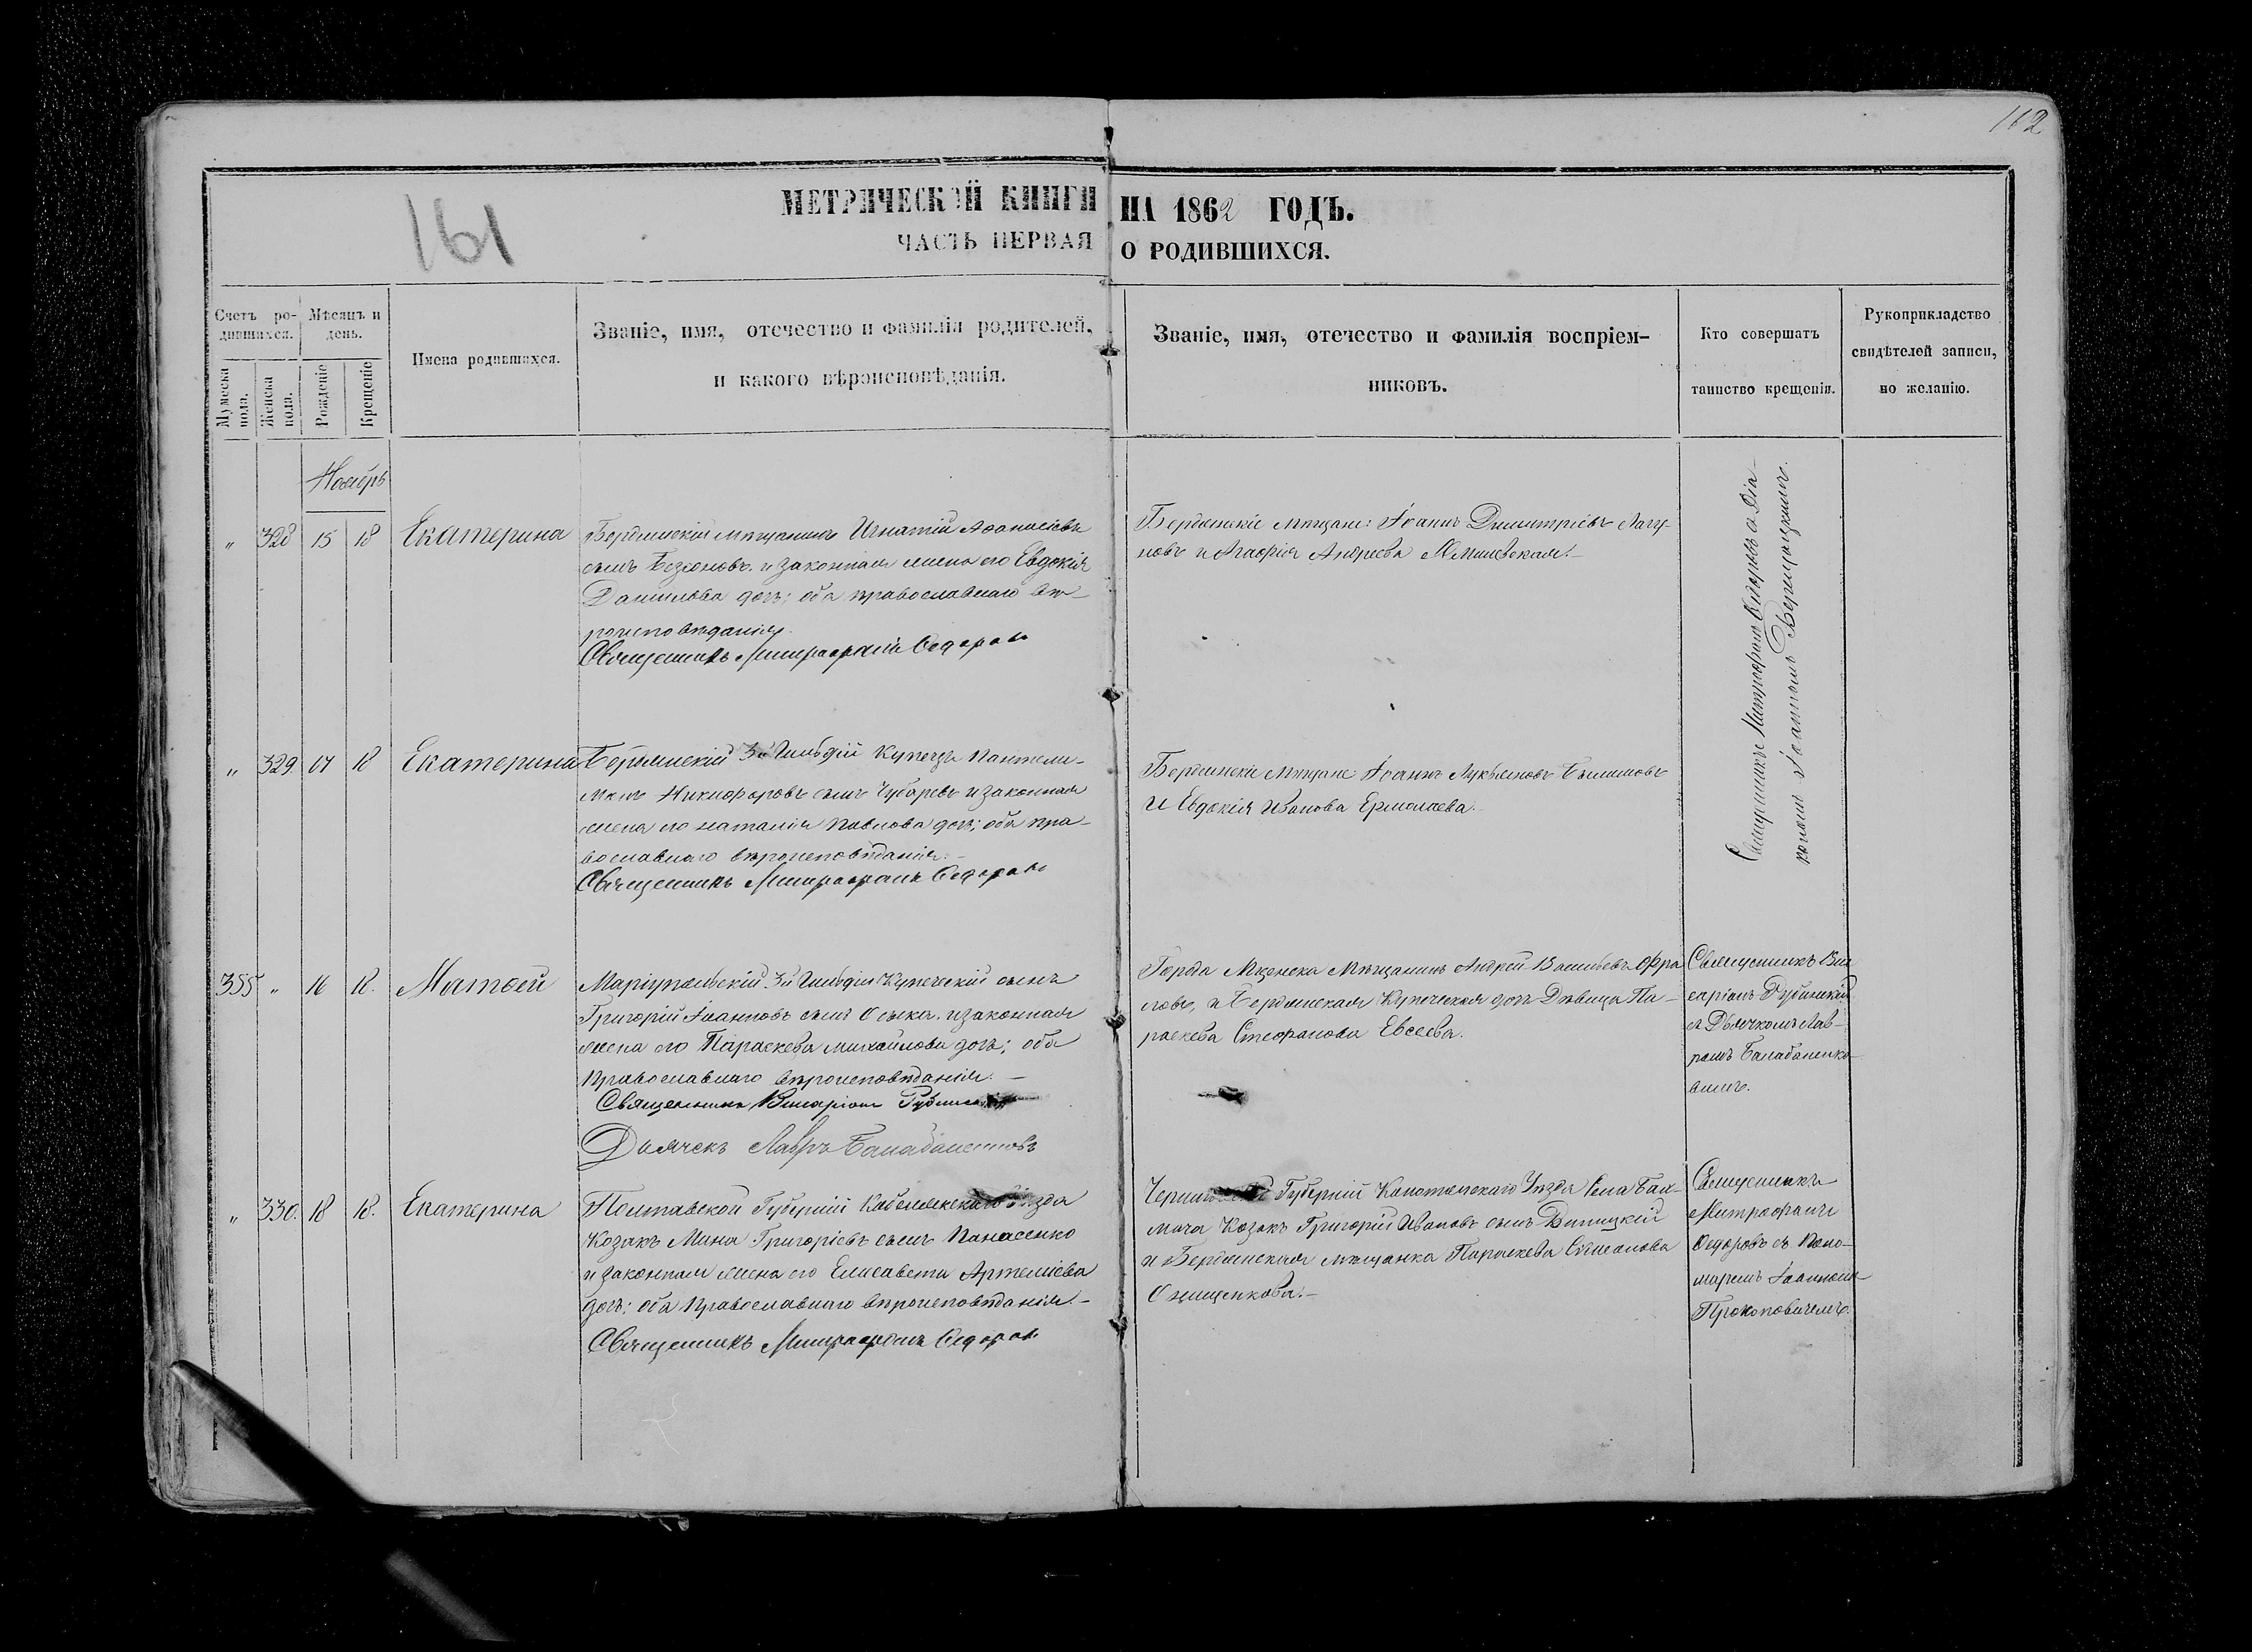 162
161
МЕТРИЧЕСКОЙ КНИГИ НА 1862 ГОДЪ.
ЧАСТЬ ПЕРВАЯ О РОДИВШИХСЯ.
Счетъ ро-
дившихся.
Мѣсяцъ и
день.
Мужеска
пола.
Женска
пола.
Рожденіе
Крещеніе
Имена родившихся.
Званіе, имя, отечество и фамилія родителей,
и какого вѣроисповѣданія.
Званіе, имя, отечество и фамилія воспріем-
никовъ.
Кто совершатъ
таинство крещенія.
Рукоприкладство
свидѣтелей записи,
по желанію.
Ноябрь
„ 328 15 18 Екатерина
Бердянскій мѣщанинъ Игнатій Аѳонасіевъ
сынъ и законная жена его Евдокія
Данилова дочь; оба православнаго вѣ-
роисповѣданія.
Священникъ Митрофанъ Ѳедоровъ
Бердянскіе мѣщане: Іоаннъ Димитріевъ Лагу-
новъ и Агафія Андреева
Священникъ Митрофанъ Ѳедоровъ съ Діа-
кономъ Іоанномъ
„ 329 07 18 Екатерина
Бердянскій 3й Гильдіи Купецъ Пантели-
монъ Никифоровъ сынъ Чубаревъ и законная
жена его Наталія Павлова дочь; оба пра-
вославнаго вѣроисповѣданія.-
Священникъ Митрофанъ Ѳедоровъ
Бердянскіе Мѣщане Іоаннъ Лукьяновъ
и Евдокія Иванова Ермолаева.
355 „ 16 18. Матѳей
Маріупольскій 3й Гильдіи Купеческій сынъ
Григорій Іоанновъ сынъ и законная
жена его Параскева Михайлова дочь; оба
Православнаго вѣроисповѣданія.-
Священникъ Виссаріонъ
Дьячекъ Лавръ
Города Мценска Мѣщанинъ Андрей Васильевъ Фро
ловъ, и Бердянская Купеческая дочь Дѣвица Па-
раскева Стефанова Евсеева.
Священникъ Вис
саріонъ
съ Дьячкомъ Лав-
ромъ Балабаненко-
вымъ.
„ 330. 18 18. Екатерина
Полтавской Губерніи Кобелякскаго Уѣзда
Козакъ Мина Григоріевъ сынъ Панасенко
и законная жена его Елисавета Артеміева
дочь: оба Православнаго вѣроисповѣданія.-
Священникъ Митрофанъ Ѳедоровъ
Губерніи Конотопскаго Уѣзда Села Бах-
мача Козакъ Григорій Ивановъ сынъ
и Бердянская мѣщанка Параскева
Онищенкова.-
Священникъ
Митрофанъ
Ѳедоровъ съ Поно-
маремъ Іоанномъ
Прокоповичемъ.